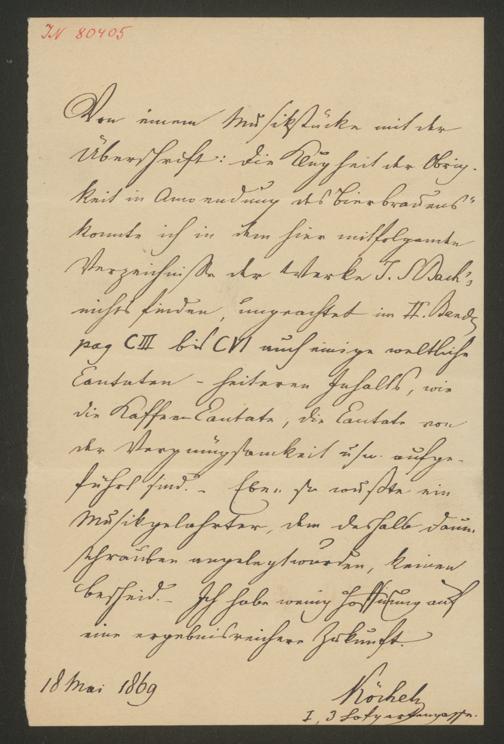 IN 80405
Von einem Musikstücke mit der
Überschrift: „Die Klugheit der Obrig-
keit in Anwendung des Bierbrauens"
konnte ich in dem hier mitfolgenden
Verzeichnisse der Werke J. S. Bach's
nichts finden, ungeachtet im II. Bande
pag CIII bis CVI auch einige weltliche
Cantaten – heiteren Inhalts, wie
die Kaffee-Cantate, die Cantate von
der Vergnügsamkeit usw. aufge-
führt sind. – Eben so wußte ein
Musikgelehrter, dem deshalb Daum-
schrauben angelegt wurden, keinen
Bescheid. – Ich habe wenig Hoffnung auf
eine ergebnisreichere Zukunft.
18 Mai 1869
Köchel
I, 3